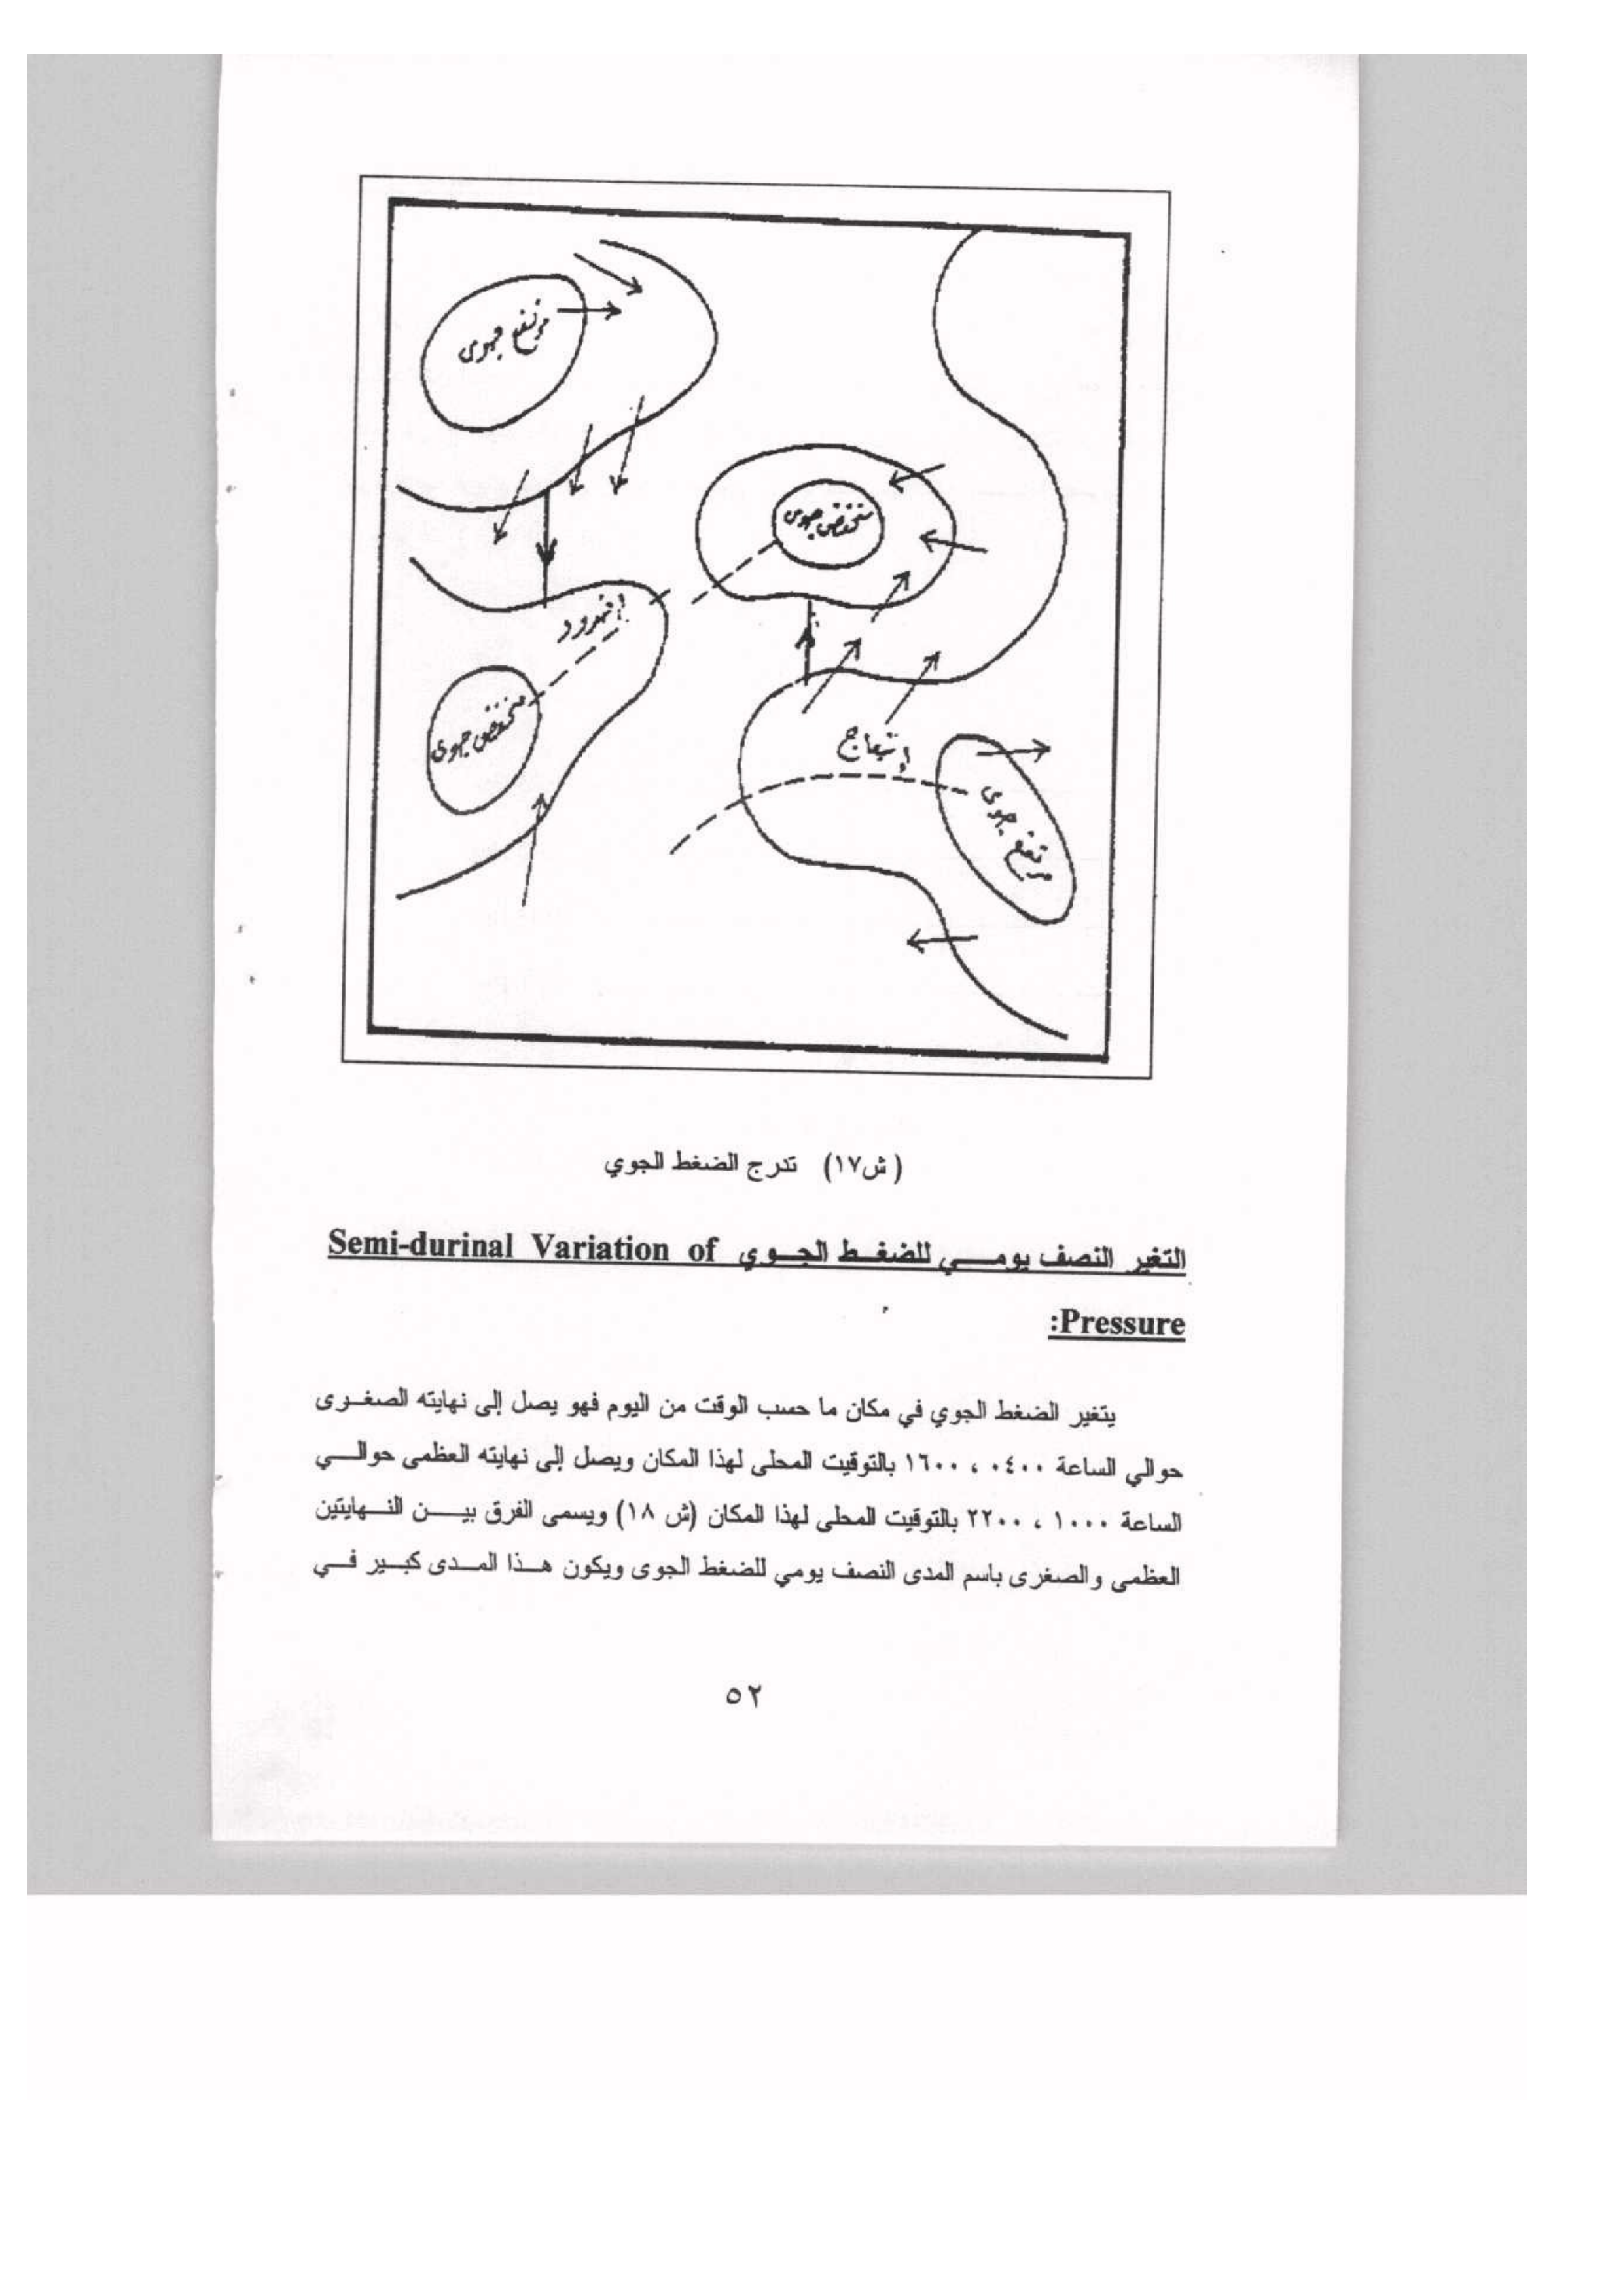 مرتفع جوى
منخفض جوى
اخدود
منخفض جوى
إنبعاج
مرتفع جوى
(ش١٧) تدرج الضغط الجوي
التغير النصف يومـــي للضغـط الجـوي Semi-durinal Variation of
Pressure:
يتغير الضغط الجوي في مكان ما حسب الوقت من اليوم فهو يصل إلى نهايته الصغـرى
حوالي الساعة ٠٤٠٠ ، ١٦٠٠ بالتوقيت المحلى لهذا المكان ويصل إلى نهايته العظمى حوالـــي
الساعة ١٠٠٠ ، ٢٢٠٠ بالتوقيت المحلى لهذا المكان (ش ١٨) ويسمى الفرق بيـــن النـــهايتين
العظمى والصغرى باسم المدى النصف يومي للضغط الجوى ويكون هـــذا المـــدى كبـــير فـــي
٥٢